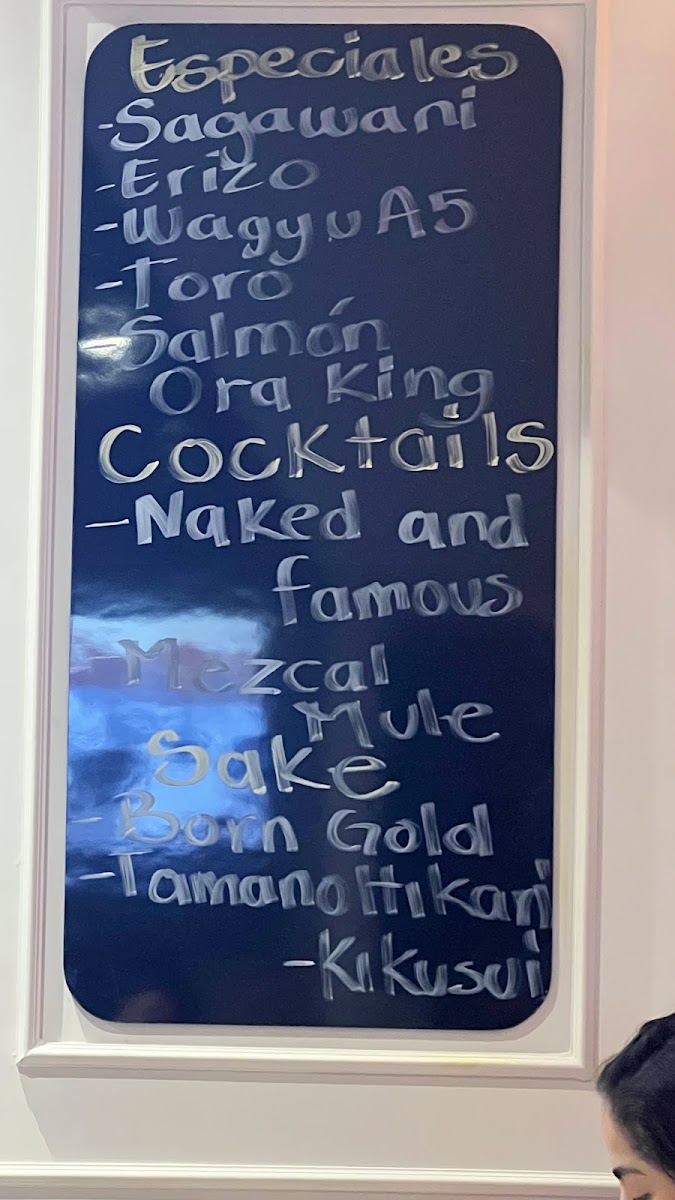 Especiales
-Sagawani
-Erizo
-Wagyu A5
-Toro
-Salmón
Ora King
Cocktails
-Naked and
famous
Mezcal
Mule
Sake
-Born Gold
-Tamano Hikari
-Kikusui